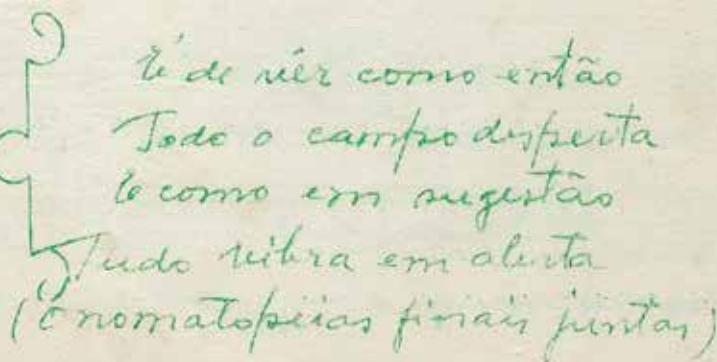 É de vêr como então
Todo o campo desperta
E como em sugestão
Tudo vibra em alerta
(Onomatopeias finais juntas)